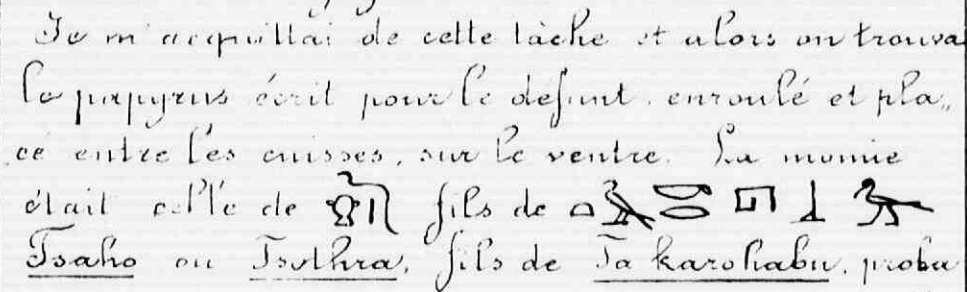 Je m'acquittai de cette tâche et alors on trouva
le papyrus écrit pour le défunt, enroulé et pla„
cé entre les cuisses, sur le ventre. La momie
était celle de fils de
Tsaho ou Tsothra, fils de Ta karohabu, proba